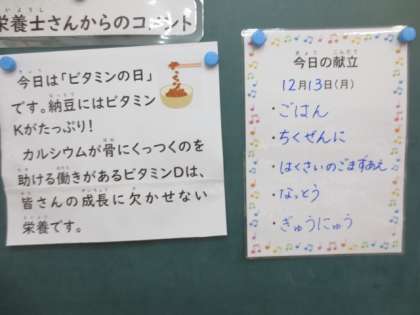 栄養士さんからのコメント
今日は「ビタミンの日」
です。納豆にはビタミン
Kがたっぷり!
カルシウムが骨にくっつくのを
助ける働きがあるビタミンDは、
皆さんの成長に欠かせない
栄養です。
今日の献立
12月13日(月)
・ごはん
・ちくぜんに
・はくさいのごまずあえ
・なっとう
・ぎゅうにゅう